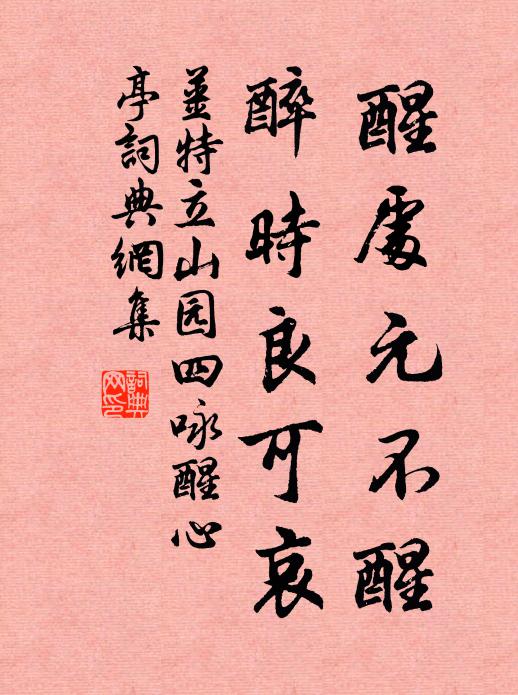 醒處元不醒
醉時良可哀
姜特立山园四咏醒心
亭詞典網集
詞典
网印